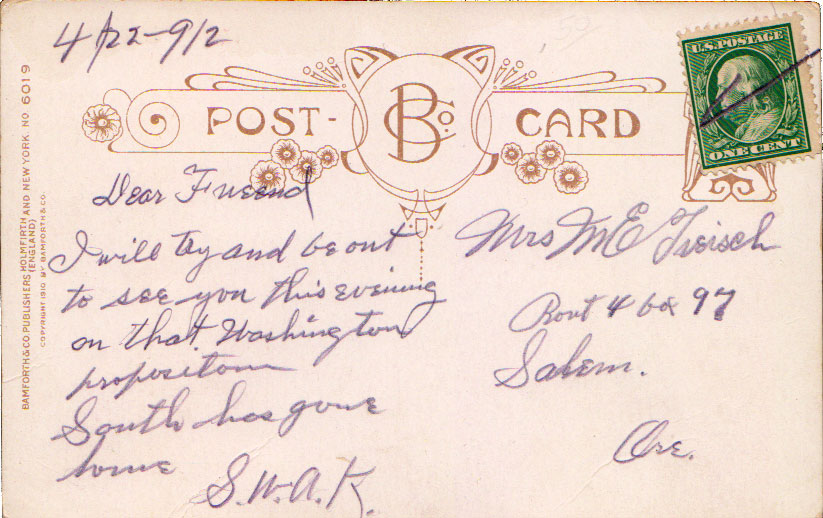 4/22-9/2
U.S. POSTAGE
ONE CENT
POST-
B Co.
CARD
Dear Frieend
I will try and be out
to see you this evening
on that Washington
propositom
South has gone
home
S.W.A.K.
Mrs M E
Rout 4 box 97
Salem.
Ore.
BAMFORTH & CO. PUBLISHERS HOLMFIRTH AND NEW YORK NO. 6019
(ENGLAND)
COPYRIGHT 1910 BY BAMFORTH & CO.